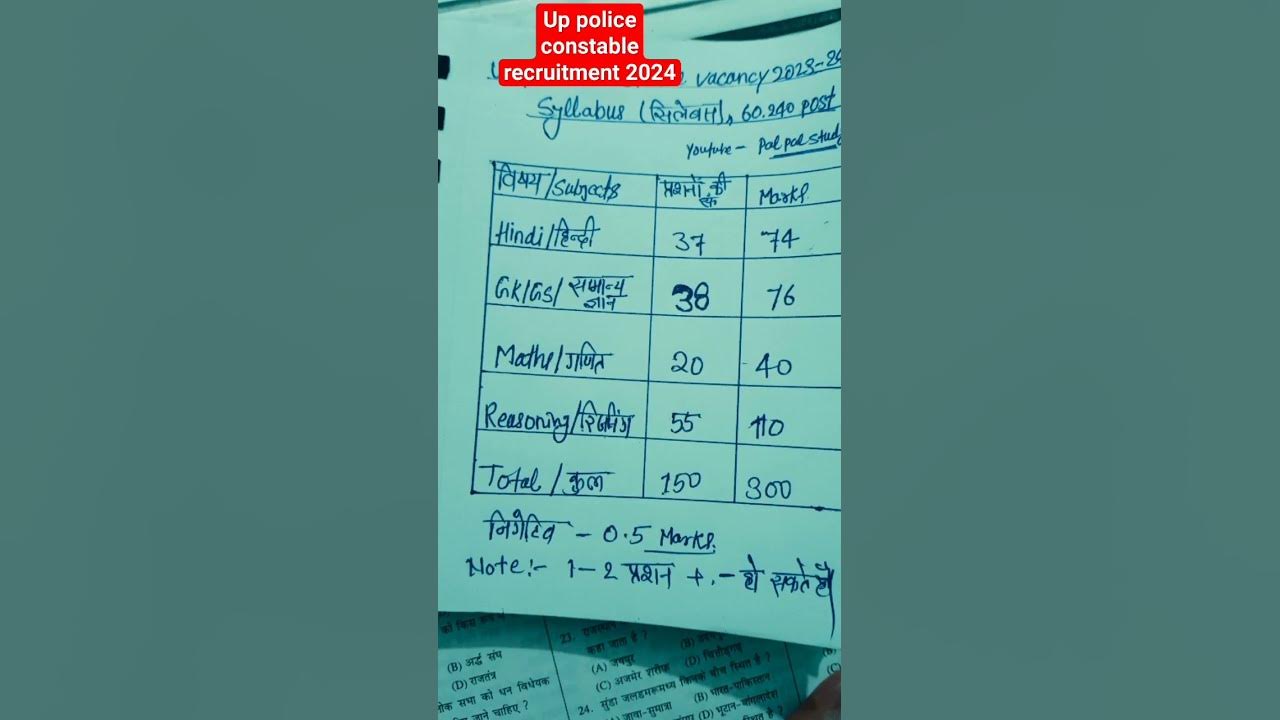 Up police
constable
recruitment 2024
vacancy 2023-24
Syllabus (सिलेबस), 60.240 post
Youtube - Pal pal study
विषय/Subjects प्रश्नों की सं Marks
Hindi/हिन्दी 37 74
GK/GS/ सामान्य ज्ञान 38 76
Maths/गणित 20 40
Reasoning/रिजनिंग 55 110
Total/कुल 150 300
निगेटिव - 0.5 Marks.
Note:- 1-2 प्रशन +.- हो सकते हैं
को किस
(B) अर्द्ध संघ
(D) राजतंत्र
लोक सभा को धन विधेयक
जाने चाहिए ?
23. राजस्थान
कहा जाता है ?
(A) जयपुर (B)
(C) अजमेर शरीफ (D) चित्तौड़गढ़
24. सुंडा जलडमरूमध्य किनके बीच स्थित है ?
जावा-सुमात्रा (B) भारत-पाकिस्तान
(D) भूटान-बांग्लादेश